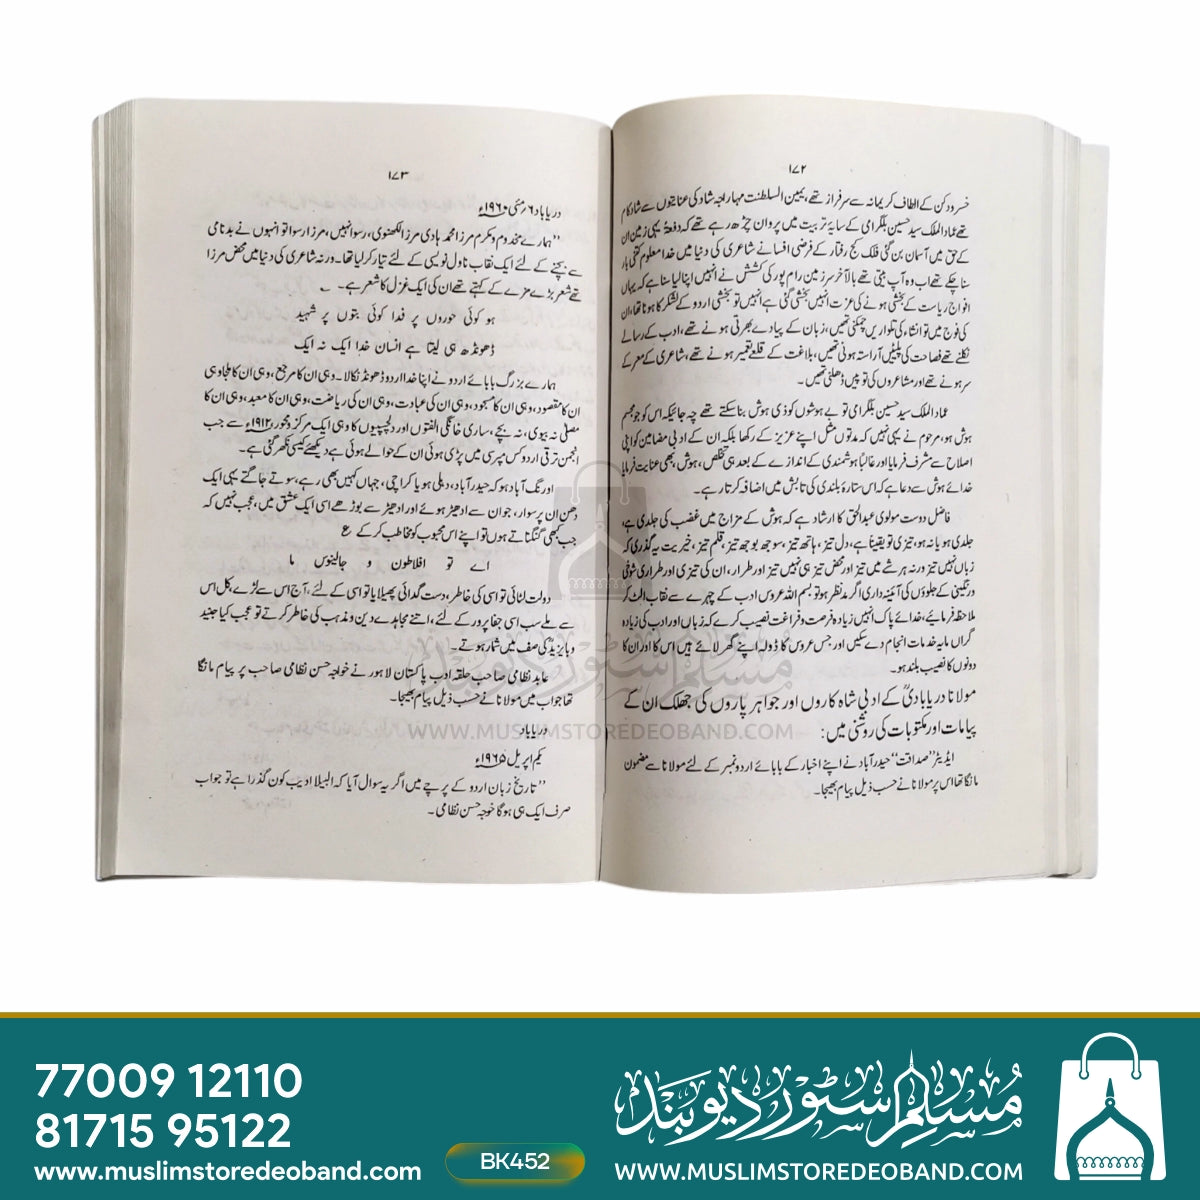 ۱۷۲
خسرو دکن کے الطاف کریمانہ سے سرفراز تھے، یمین السلطنت مہاراجہ شاد کی عنایتوں سے شاد کام
تھے عماد الملک سید حسین بلگرامی کے سایۂ تربیت میں پروان چڑھ رہے تھے کہ دفعۃً یہی زمین ان
کے حق میں آسمان بن گئی فلک کج رفتار کے فرضی افسانے شاعری کی دنیا میں خدا معلوم کتنی بار
سنا چکے تھے اب وہ آپ بیتی تھے بالآخر سرزمین رام پور کی کشش نے انہیں اپنا لیا سنا ہے کہ یہاں
افواج ریاست کے بخشی ہونے کی عزت انہیں بخشی گئی ہے انہیں تو بخشی اردو کے لشکر کا ہونا تھا، ان
کی فوج میں تو انشاء کی تلواریں چمکتی تھیں، زبان کے پیادے بھرتی ہونے تھے، ادب کے رسالے
نکلنے تھے فصاحت کی پلٹنیں آراستہ ہونی تھیں، بلاغت کے قلعے تعمیر ہونے تھے، شاعری کے معرکے
سر ہونے تھے اور مشاعروں کی توپیں ڈھلنی تھیں۔
عماد الملک سید حسین بلگرامی تو بے ہوشوں کو ذی ہوش بنا سکتے تھے چہ جائیکہ اس کو جو مجسم
ہوش ہو، مرحوم نے یہی نہیں کہ مدتوں مثل اپنے عزیز کے رکھا بلکہ ان کے ادبی مضامین کو اپنی
اصلاح سے مشرف فرمایا اور غالباً ہوشمندی کے اندازے کے بعد ہی تخلص، ہوش، بھی عنایت فرمایا
خدائے ہوش سے دعا ہے کہ اس ستارۂ بلندی کی تابش میں اضافہ کرتا رہے۔
فاضل دوست مولوی عبدالحق کا ارشاد ہے کہ ہوش کے مزاج میں غضب کی جلدی ہے،
جلدی ہو یا نہ ہو، تیزی تو یقیناً ہے، دل تیز، ہاتھ تیز، سوجھ بوجھ تیز، قلم تیز، خیریت یہ گذری کہ
زباں نہیں تیز ورنہ ہر شے میں تیز اور محض تیز ہی نہیں تیز اور طرار، ان کی تیزی اور طراری شوخی
ورنگینی کے جلوؤں کی آئینہ داری اگر مدنظر ہو تو بسم اللہ عروس ادب کے چہرے سے نقاب الٹ کر
ملاحظہ فرمائیے، خدائے پاک انہیں زیادہ فرصت و فراغت نصیب کرے کہ زباں اور ادب کی زیادہ
گراں مایہ خدمات انجام دے سکیں اور جس عروس کا ڈولہ اپنے گھر لائے ہیں اس کا اور ان کا
دونوں کا نصیب بلند ہو۔
مولانا دریابادیؒ کے ادبی شاہ کاروں اور جواہر پاروں کی جھلک ان کے
پیامات اور مکتوبات کی روشنی میں:
ایڈیٹر "صداقت" حیدرآباد نے اپنے اخبار کے بابائے اردو نمبر کے لئے مولانا سے مضمون
مانگا تھا اس پر مولانا نے حسب ذیل پیام بھیجا۔
۱۷۳
دریاباد ۶/مئی ۱۹۶۰ء
"ہمارے مخدوم و مکرم مرزا محمد ہادی مرزا لکھنوی، رسوا نہیں، مرزا رسوا تو انہوں نے بدنامی
سے بچنے کے لئے ایک نقاب ناول نویسی کے لئے تیار کر لیا تھا۔ ورنہ شاعری کی دنیا میں محض مرزا
تھے شعر بڑے مزے کے کہتے تھے ان کی ایک غزل کا شعر ہے۔
ہو کوئی حوروں پر فدا کوئی بتوں پر شہید
ڈھونڈھ ہی لیتا ہے انسان خدا ایک نہ ایک
ہمارے بزرگ بابائے اردو نے اپنا خدا اردو ڈھونڈ نکالا۔ وہی ان کا مرجع، وہی ان کا ملجا وہی
ان کا مقصود، وہی ان کا مسجود، وہی ان کی عبادت، وہی ان کی ریاضت، وہی ان کا معبد، وہی ان کا
مصلی نہ بیوی، نہ بچے، ساری خانگی الفتوں اور دلچسپیوں کا وہی ایک مرکز ومحور، ۱۹۱۲ء سے جب
انجمن ترقی اردو کس مپرسی میں پڑی ہوئی ان کے حوالے ہوئی ہے دیکھئے کیسی نکھر گئی ہے۔
اورنگ آباد ہو کہ حیدرآباد، دہلی ہو یا کراچی، جہاں کہیں بھی رہے، سوتے جاگتے یہی ایک
دھن ان پر سوار، جوان سے ادھیڑ ہوئے اور ادھیڑ سے بوڑھے اسی ایک عشق میں، عجب نہیں کہ
جب کبھی گنگناتے ہوں تو اپنے اس محبوب کو مخاطب کر کے ع
اے تو افلاطون و جالینوس ما
دولت لٹائی تو اسی کی خاطر، دست گدائی پھیلایا تو اسی کے لئے، آج اس سے لڑے، کل اس
سے ملے سب اسی جفا پرور کے لئے، اتنے مجاہدے دین و مذہب کی خاطر کرتے تو عجب کیا جنید
و بایزیدؒ کی صف میں شمار ہوتے۔
عابد نظامی صاحب حلقہ ادب پاکستان لاہور نے خواجہ حسن نظامی صاحب پر پیام مانگا
تھا جواب میں مولانا نے حسب ذیل پیام بھیجا۔
دریاباد
یکم اپریل ۱۹۶۵ء
"تاریخ زبان اردو کے پرچے میں اگر یہ سوال آیا کہ البیلا ادیب کون گذرا ہے تو جواب
صرف ایک ہی ہوگا خوجہ حسن نظامی۔
مسلم سٹور دیوبند
WWW.MUSLIMSTOREDEOBAND.COM
77009 12110
81715 95122
www.muslimstoredeoband.com
BK452
مسلم سٹور دیوبند
WWW.MUSLIMSTOREDEOBAND.COM